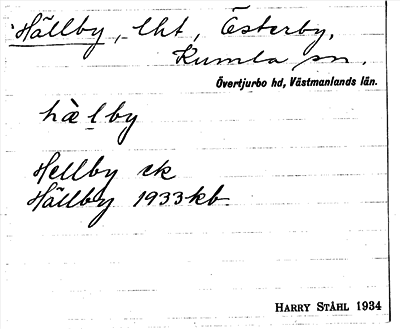 Hällby, lht, Österby,
Kumla sn.
Övertjurbo hd, Västmanlands län.
hὰlby
Hellby ek
Hällby 1933 kb.
HARRY STÅHL 1934